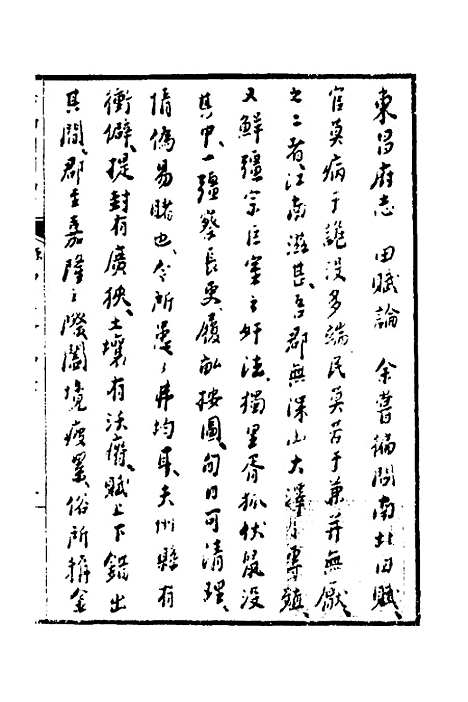 東昌府志 田賦論 余嘗徧問南北田賦、
官莫病于詭沒多端民莫苦于兼并無厭、
之二者、江南滋甚、吾郡無深山大澤 專鎮、
又鮮彊宗巨室之奸法、獨里胥狐伏鼠沒
其中、一彊察長吏、履畝按圖、旬日可清理、
情偽易睹也、今所患之弗均耳、夫州縣有
衝僻、提封有廣狹、土壤有沃瘠、賦之上下錯出
其間、郡在嘉隆之際闔境疲累、俗所稱金